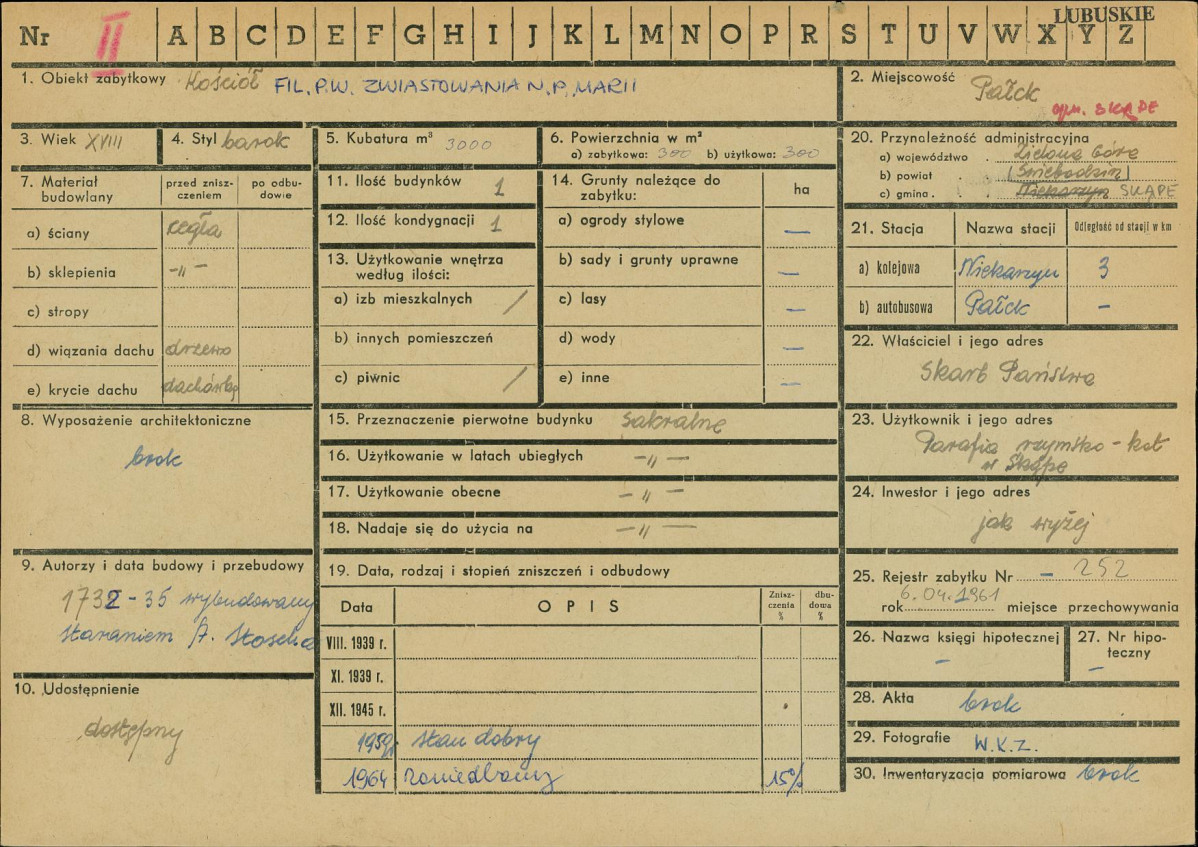 LUBUSKIE
Nr II A B C D E F G H I J K L M N O P R S T U V W X Y Z
1. Obiekt zabytkowy Kościół FIL. P.W. ZWIASTOWANIA N.P. MARII
2. Miejscowość Pałck
gm. SKĄPE
3. Wiek XVIII
4. Styl barok
5. Kubatura m³ 3000
6. Powierzchnia w m²
a) zabytkowa: 300 b) użytkowa: 300
7. Materiał budowlany
przed zniszczeniem
po odbudowie
a) ściany cegła
b) sklepienia -„-
c) stropy
d) wiązania dachu drzewo
e) krycie dachu dachówką
8. Wyposażenie architektoniczne
brak
9. Autorzy i data budowy i przebudowy
1732-35 wybudowany
staraniem A. Stoscha
10. Udostępnienie
dostępny
11. Ilość budynków 1
12. Ilość kondygnacji 1
13. Użytkowanie wnętrza
według ilości:
a) izb mieszkalnych /
b) innych pomieszczeń
c) piwnic /
14. Grunty należące do
zabytku:
ha
a) ogrody stylowe —
b) sady i grunty uprawne —
c) lasy —
d) wody —
e) inne —
15. Przeznaczenie pierwotne budynku sakralne
16. Użytkowanie w latach ubiegłych -„-
17. Użytkowanie obecne -„-
18. Nadaje się do użycia na -„-
19. Data, rodzaj i stopień zniszczeń i odbudowy
Data OPIS Zniszczenia % dbudowa %
VIII. 1939 r.
XI. 1939 r.
XII. 1945 r.
1959r. stan dobry
1964 zaniedbany 15%
20. Przynależność administracyjna
a) województwo . Zielona Góra
b) powiat . (Świebodzin)
c) gmina . Niekarzyn SKĄPE
21. Stacja Nazwa stacji Odległość od stacji w km
a) kolejowa Niekarzyn 3
b) autobusowa Pałck —
22. Właściciel i jego adres
Skarb Państwa
23. Użytkownik i jego adres
Parafia rzymsko-kat
w Skąpe
24. Inwestor i jego adres
jak wyżej
25. Rejestr zabytku Nr — 252
rok 6.04.1961 miejsce przechowywania
26. Nazwa księgi hipotecznej
—
27. Nr hipoteczny
—
28. Akta brak
29. Fotografie W.K.Z.
30. Inwentaryzacja pomiarowa brak